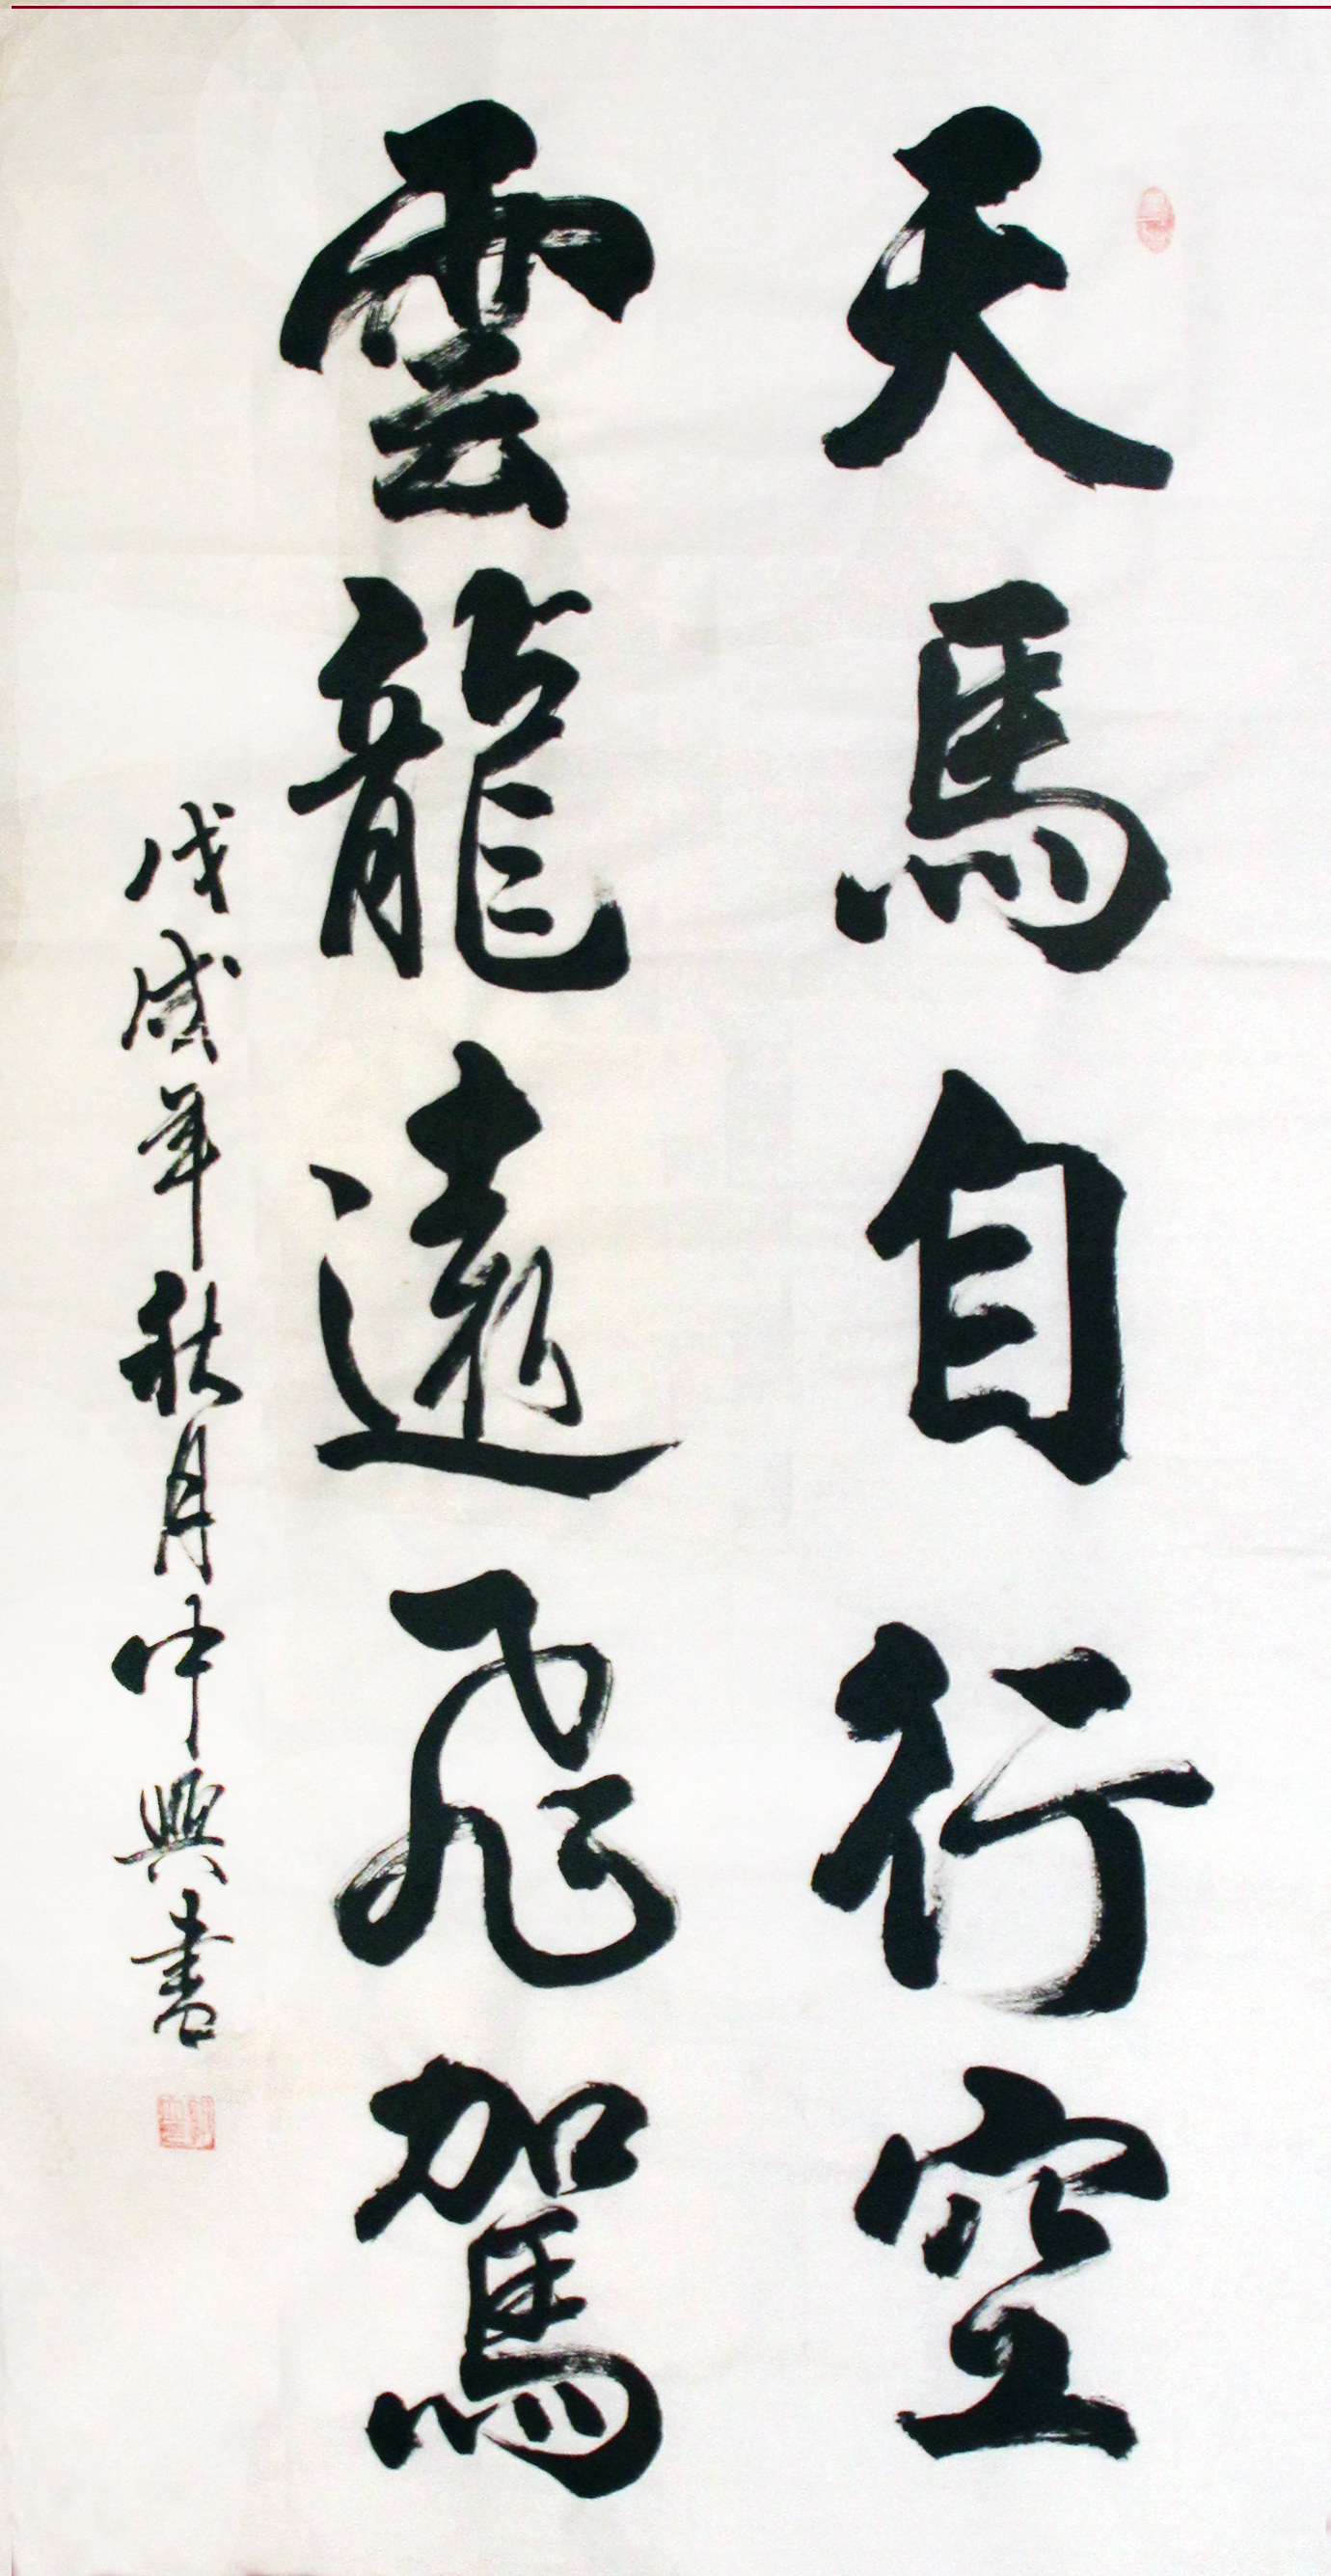 天馬自行空
雲龍遠飛駕
戊戌年秋月中興書